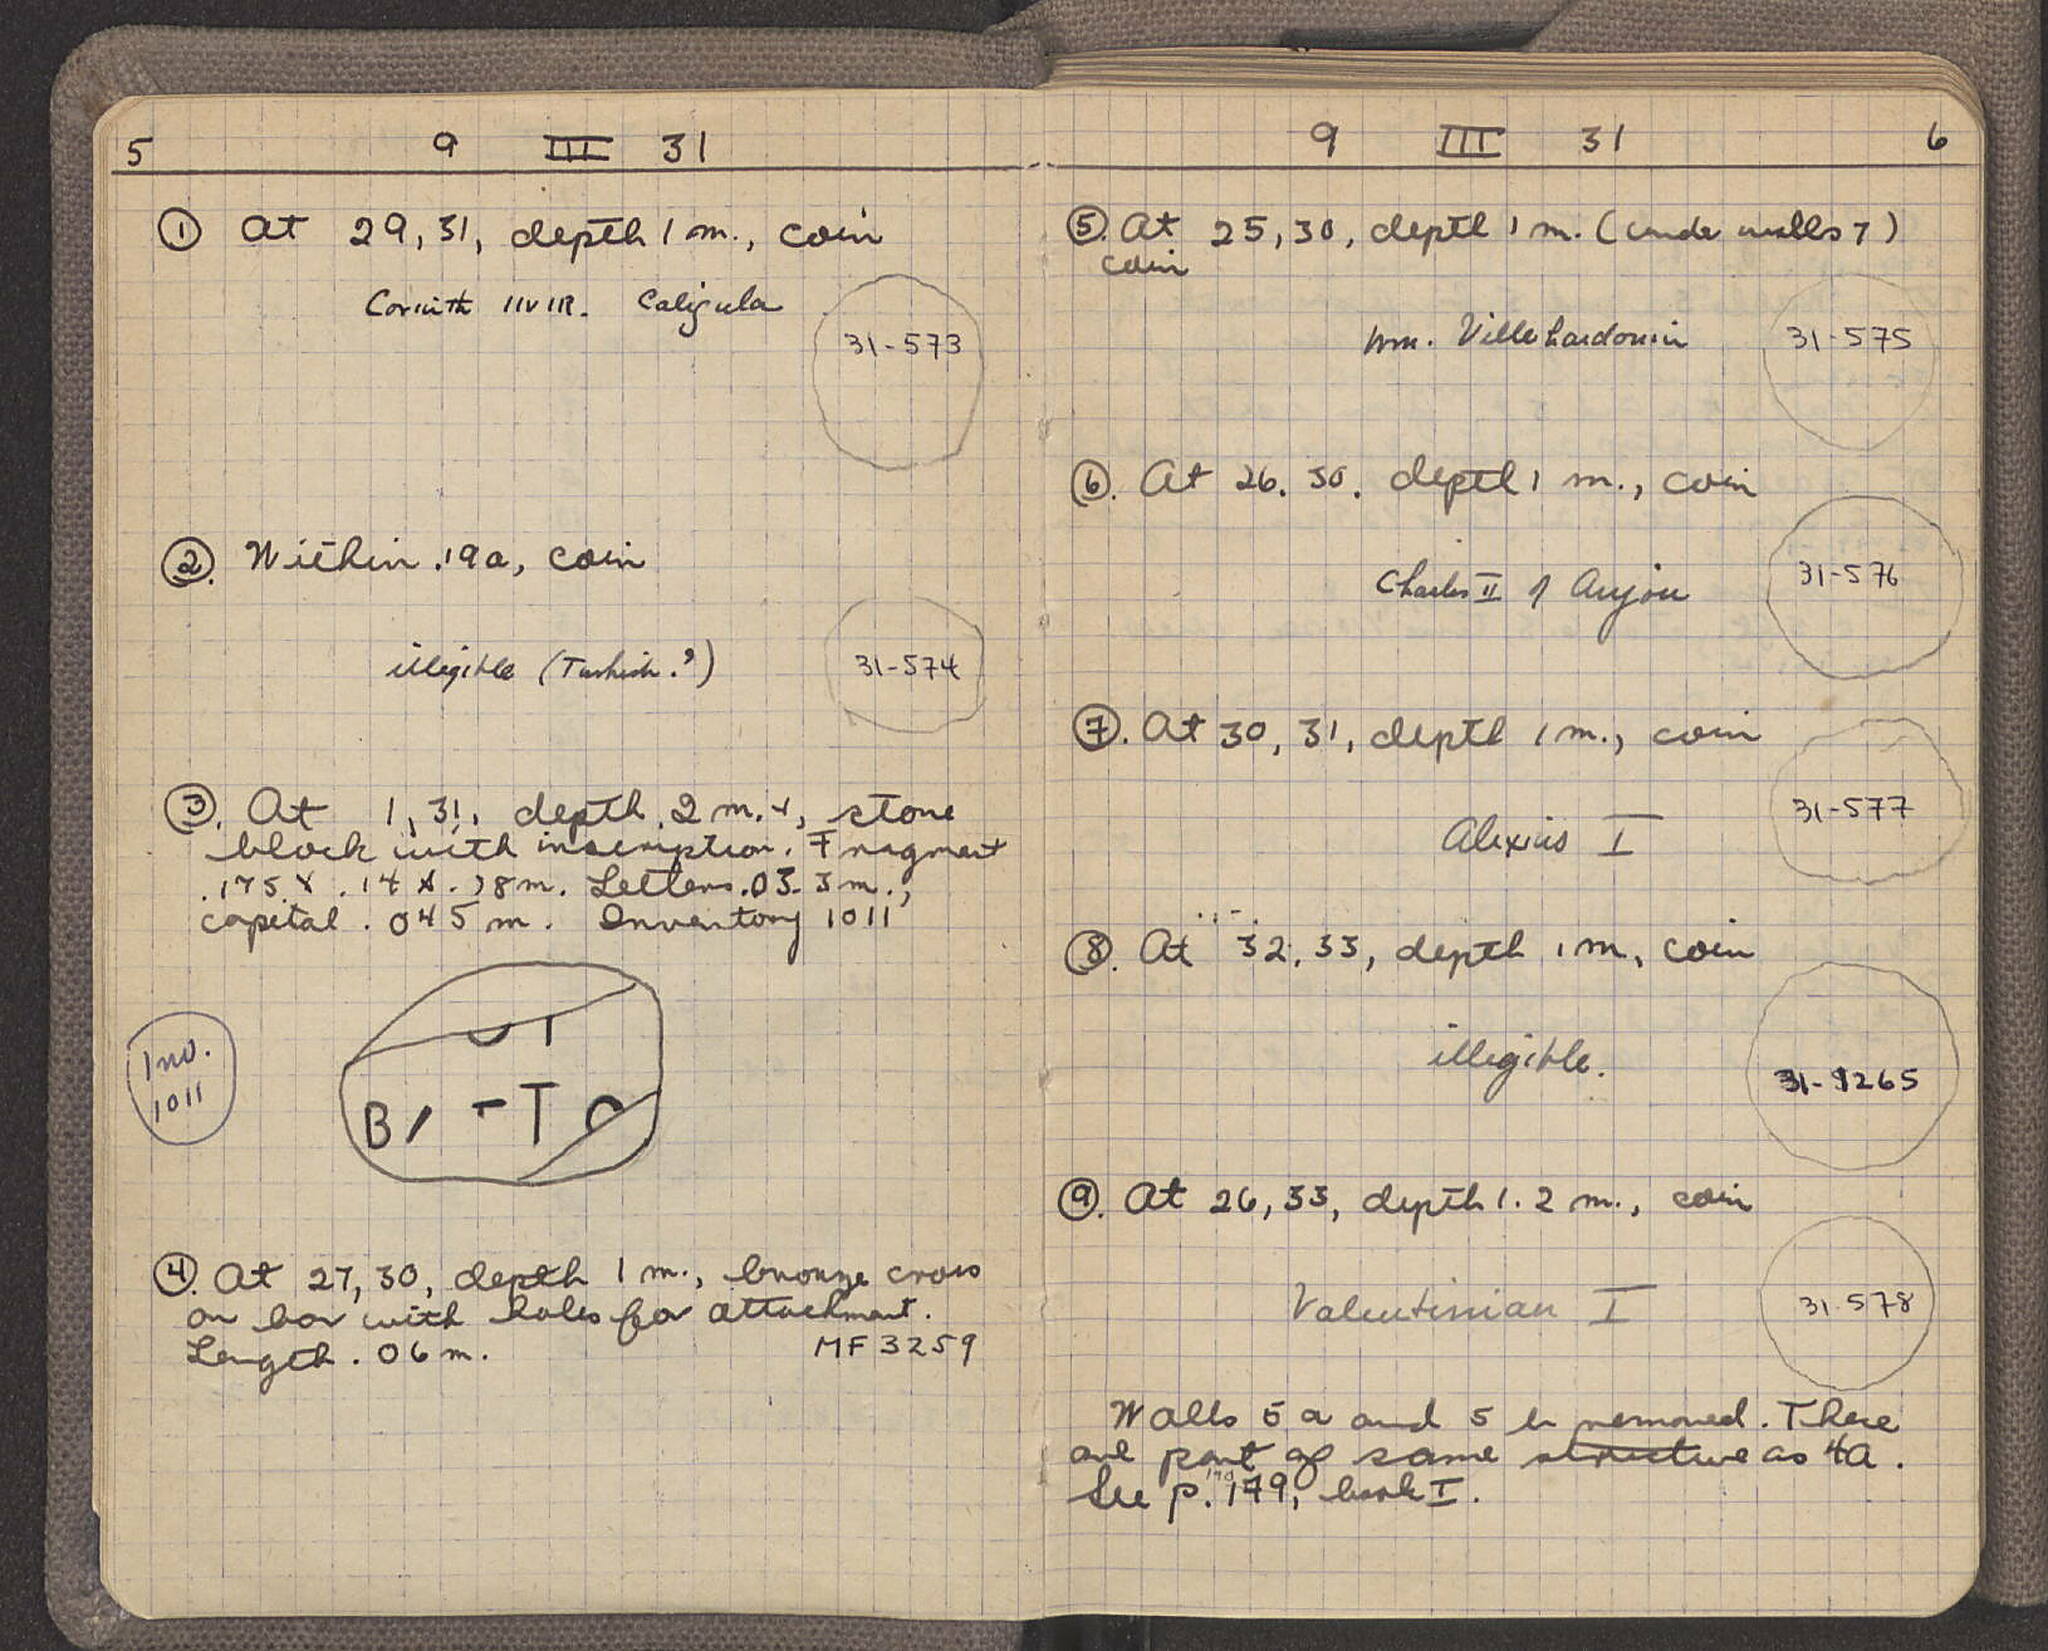 5 9 III 31
① At 29, 31, depth 1 m., coin
Corinth IIVIR. Caligula
31-573
②. Within 19a, coin
illegible (Turkish?)
31-574
③. At 1, 31, depth 2 m. +, stone
block with inscription. Fragment
.175 x .14 x .18 m. Letters .03 m.,
capital .045 m. Inventory 1011
Inv.
1011
B T
④. At 27, 30, depth 1 m., bronze cross
on bar with holes for attachment.
Length .06 m. MF 3259
9 III 31 6
⑤. At 25, 30, depth 1 m. (under walls 7)
coin
Wm. Villehardouin
31-575
⑥. At 26, 30, depth 1 m., coin
Charles II of Anjou
31-576
⑦. At 30, 31, depth 1 m., coin
Alexius I
31-577
⑧. At 32, 33, depth 1 m, coin
illegible.
31-9265
⑨. At 26, 33, depth 1.2 m., coin
Valentinian I
31-578
Walls 5a and 5b removed. These
are part of same structure as 4A.
See p. 179, book I.